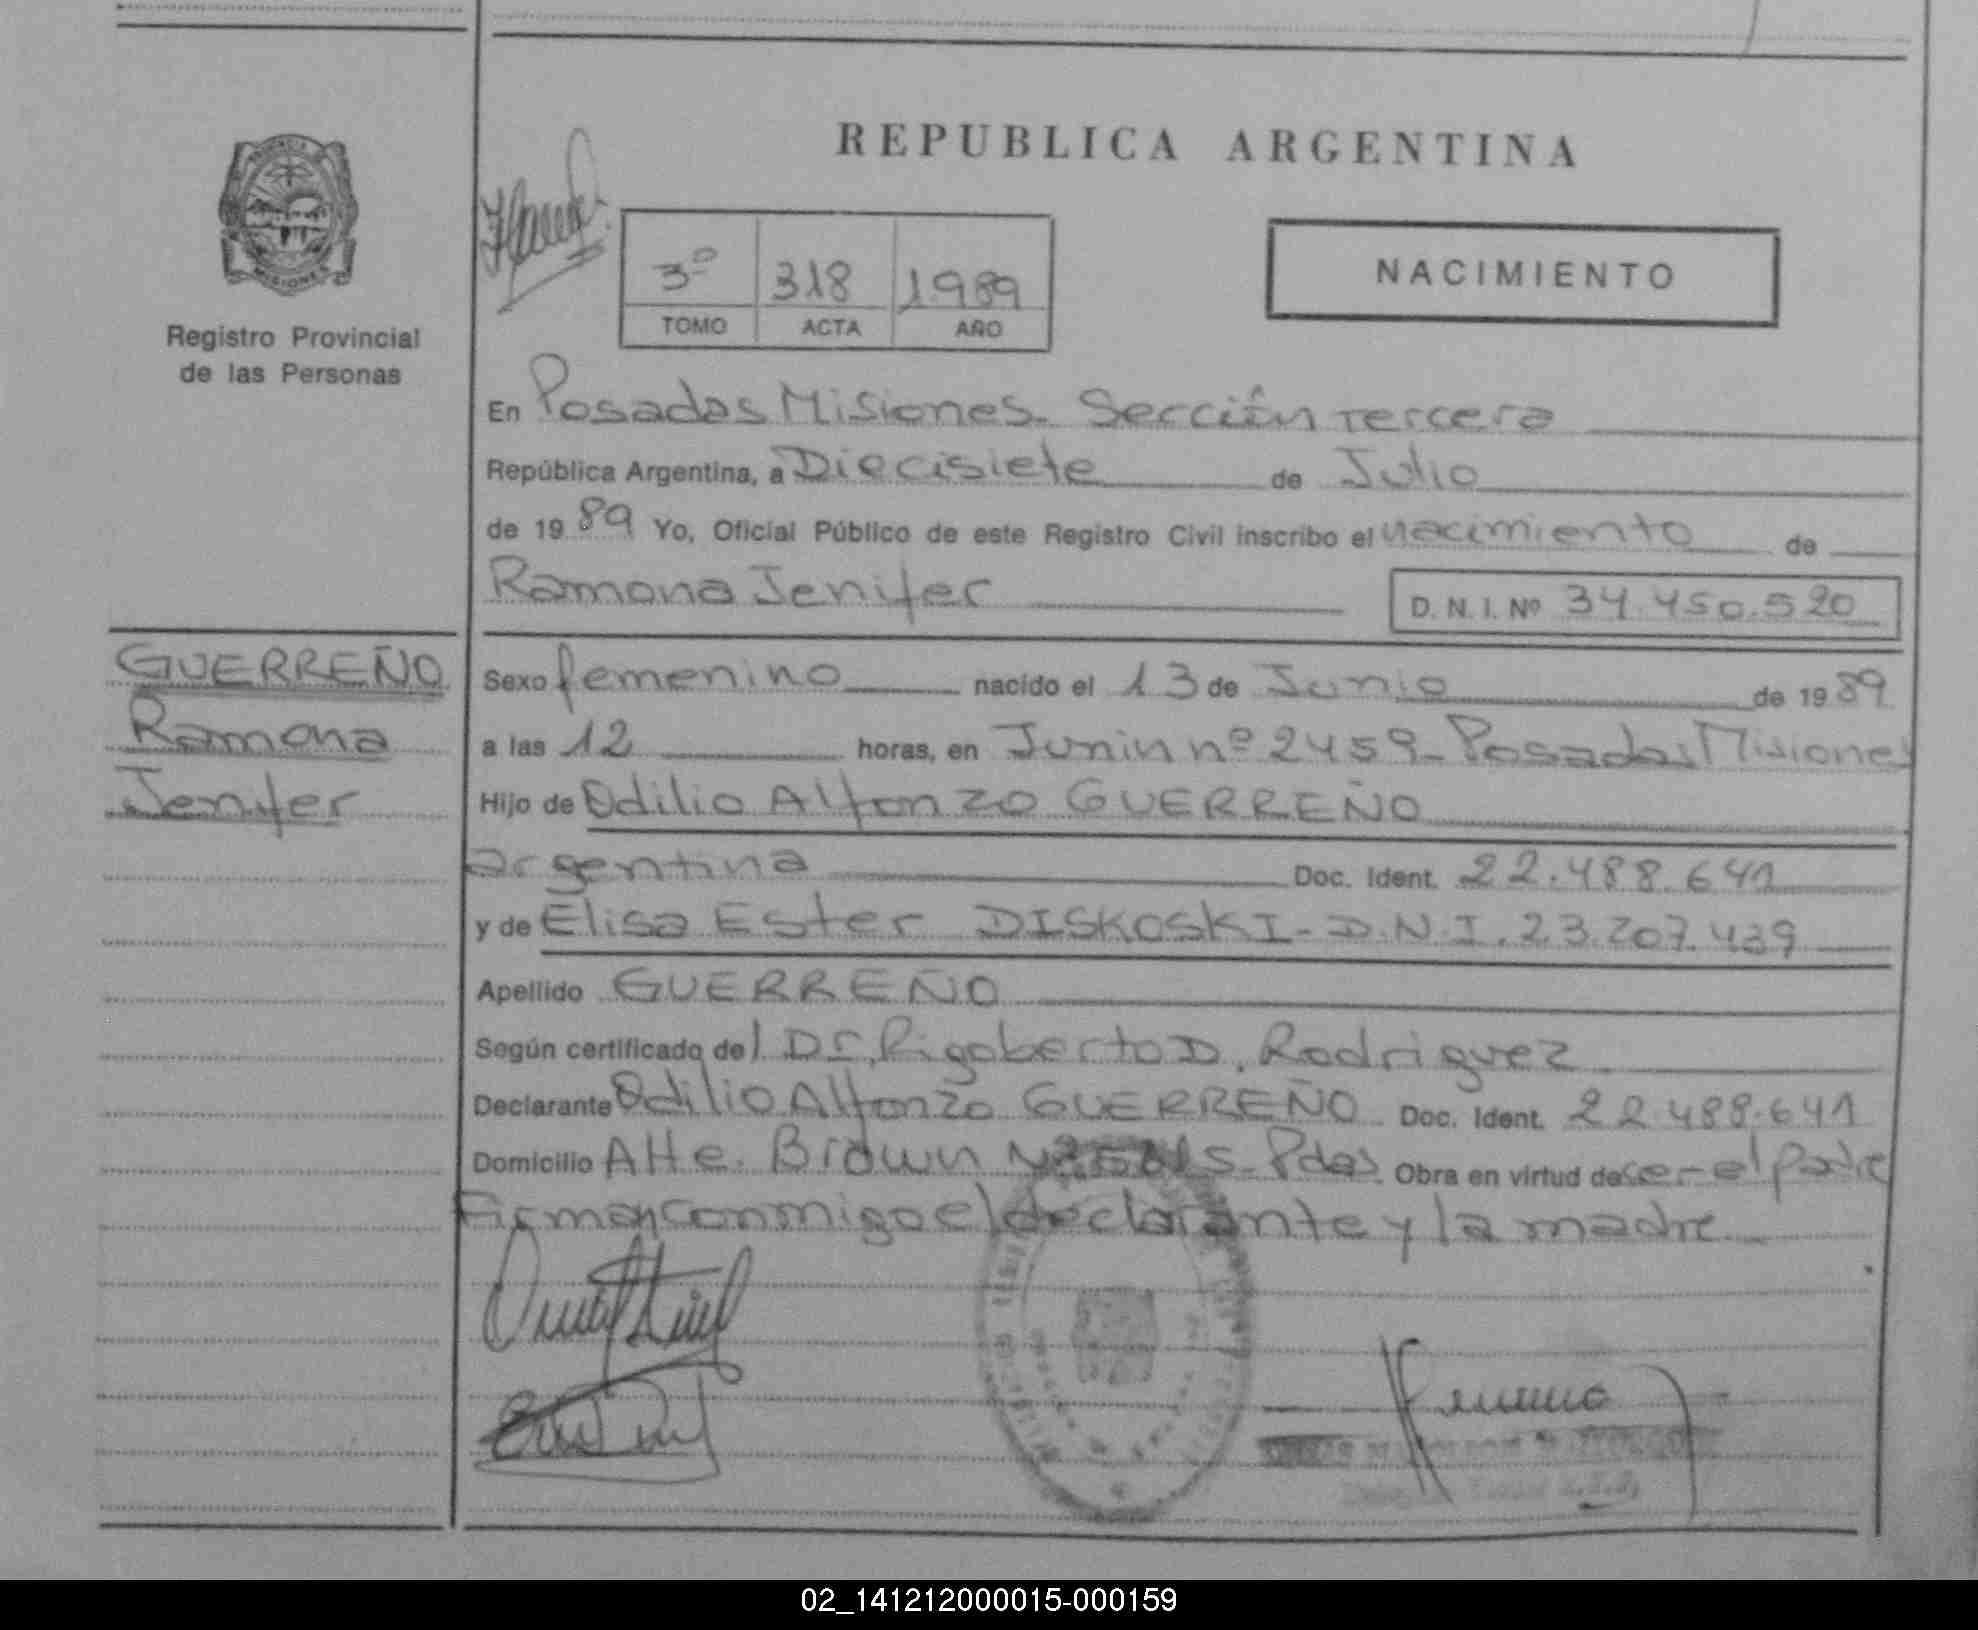 REPUBLICA ARGENTINA
PROVINCIA
MISIONES
Registro Provincial
de las Personas
3º 318 1989
TOMO ACTA AÑO
NACIMIENTO
En Posadas Misiones. Sección Tercera
República Argentina, a Diecisiete de Julio
de 1989 Yo, Oficial Público de este Registro Civil inscribo el nacimiento de
Ramona Jenifer D. N. I. Nº 34.450.520
GUERREÑO
Ramona
Jenifer
Sexo femenino nacido el 13 de Junio de 1989
a las 12 horas, en Junin nº 2459- Posadas Misiones
Hijo de Odilio Alfonzo GUERREÑO
argentina Doc. Ident. 22.488.641
y de Elisa Ester DISKOSKI- D.N.I. 23.207.439
Apellido GUERREÑO
Según certificado del Dr. Rigoberto D. Rodriguez
Declarante Odilio Alfonzo GUERREÑO Doc. Ident. 22.488.641
Domicilio Alte. Brown Pdas. Obra en virtud de ser el padre
Firman conmigo el declarante y la madre
02_141212000015-000159